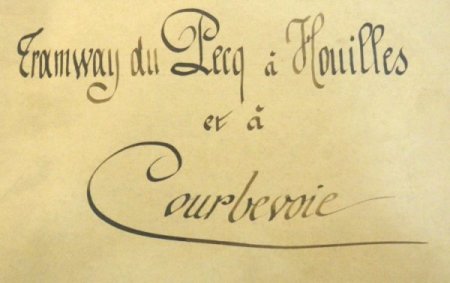 Tramway du Pecq à Houilles
et à
Courbevoie